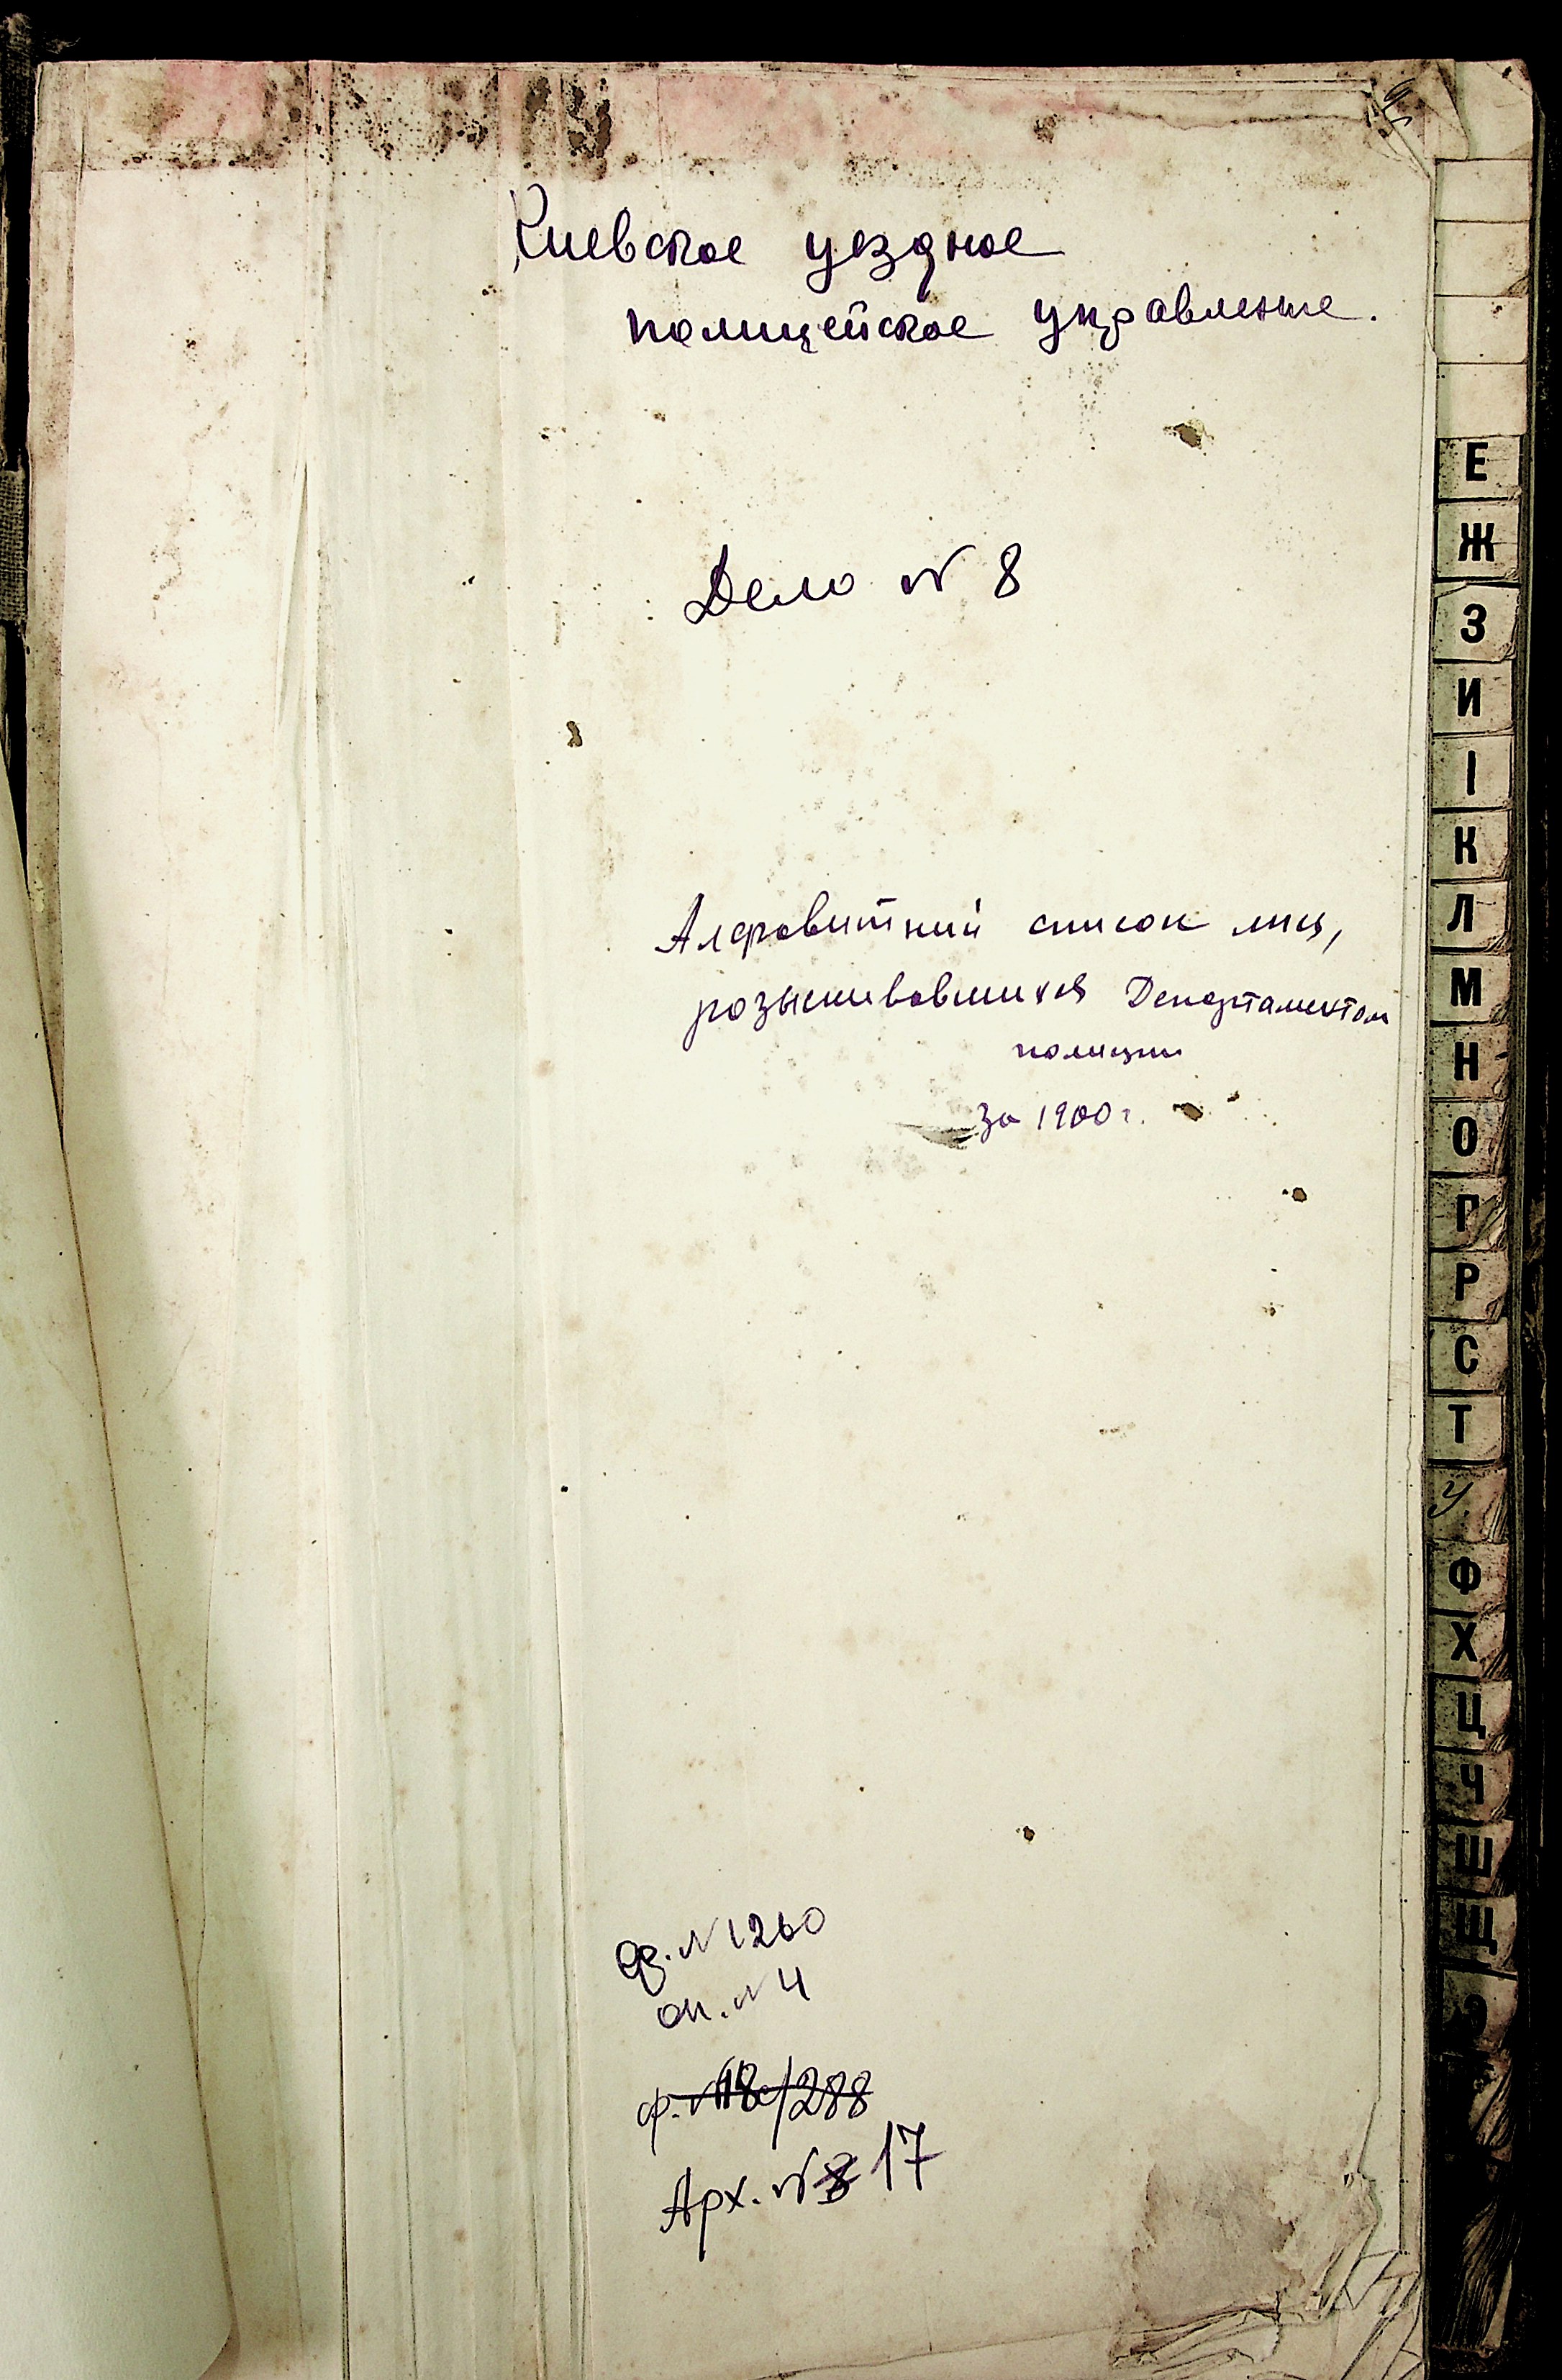 Киевское уездное
полицейское управление.
Дело № 8
Алфавитний список лиц,
розыскивавшихся Департаментом
полиции
за 1900 г.
ф. № 1260
оп. № 4
ф. № 18/288
Арх. № 8 17
Е
Ж
З
И
І
К
Л
М
Н
О
П
Р
С
Т
У
Ф
Х
Ц
Ч
Ш
Щ
Э